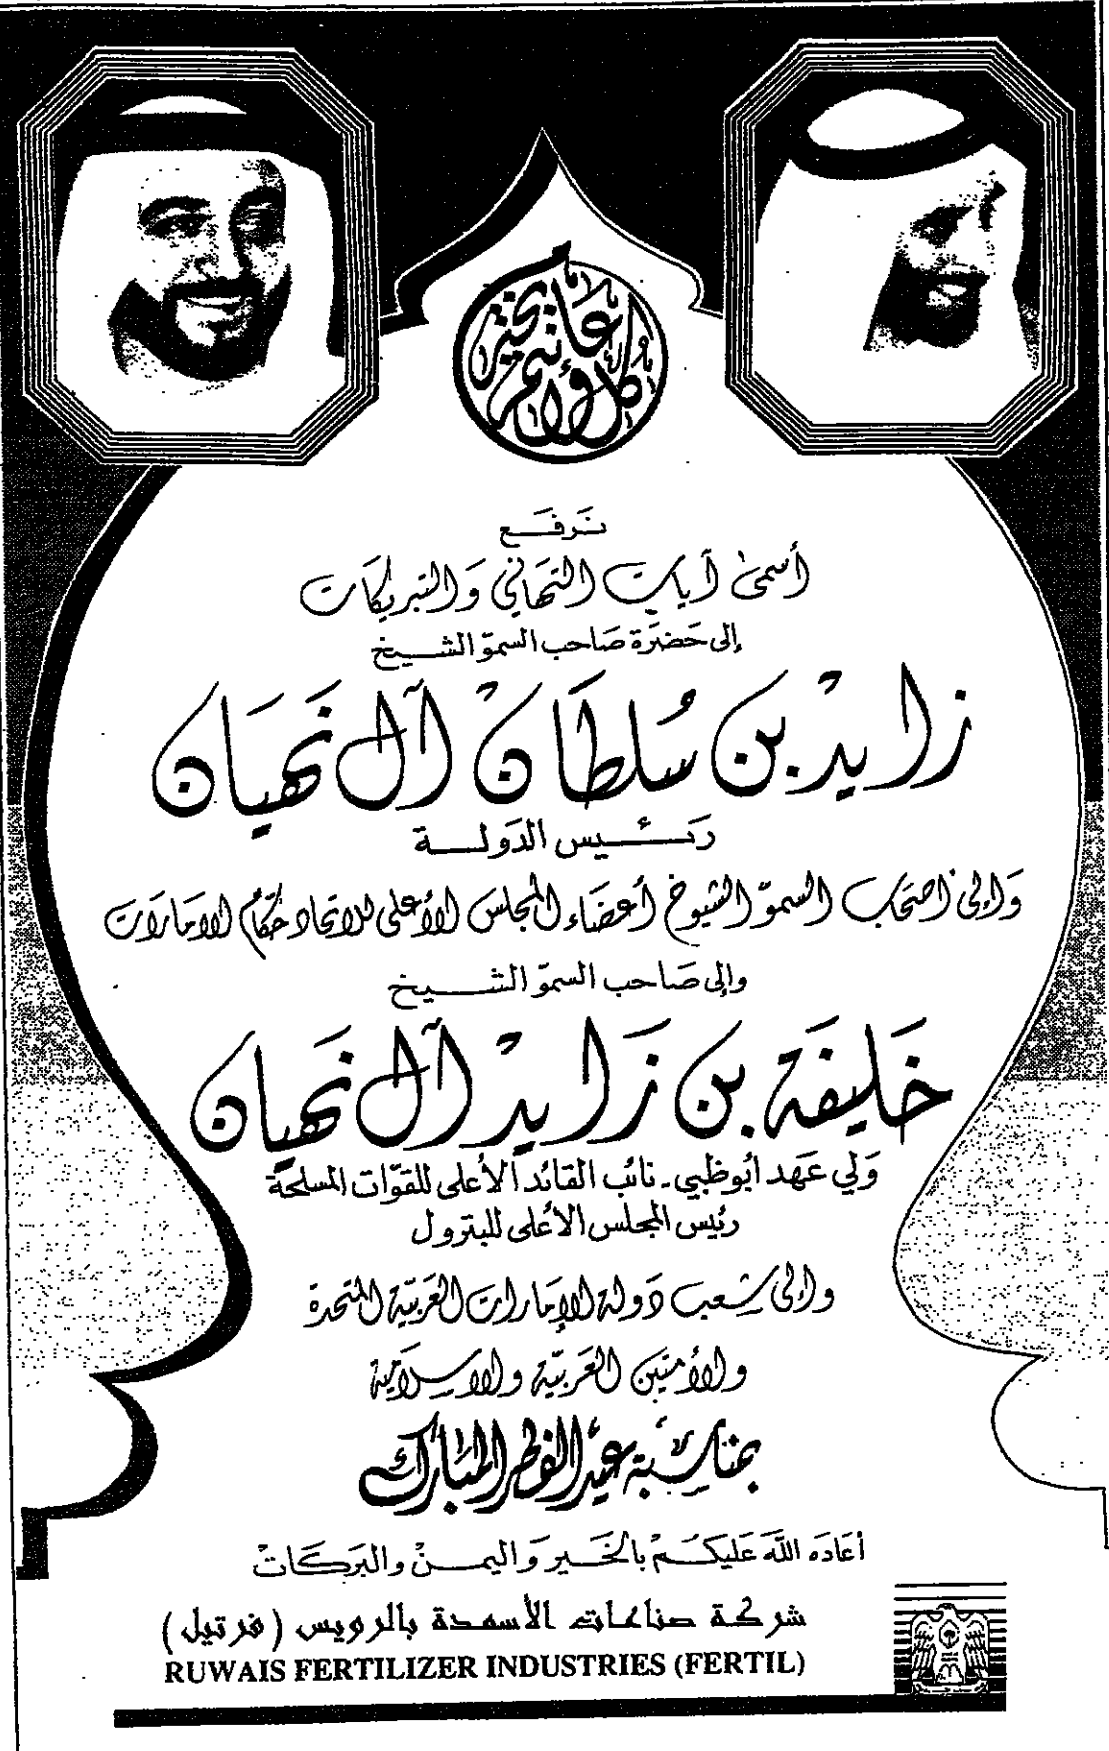 كل عام وأنتم بخير
نَرفَـــع
أسمىٰ آيات التهاني وَالتبريكات
إلى حَضرَة صَاحب السموّ الشـــيخ
زايدْ بن سُلطَانْ آل نَهيَان
رَئـــــيس الدَولـــة
وَإلى اصحَاب السموّ الشيوخ أعضَاء المجلس الأعلى للاتحاد حُكَام الامَارَات
وإلى صَاحب السموّ الشـــيخ
خَليفَة بن زَايدْ آل نَهيَان
وَلي عَهد أبوظبي - نائب القائد الأعلى للقوّات المسلحة
رئيس المجلس الأعلى للبترول
وإلى شعب دَولة الإمَارات العَربيّة المتحدة
والأمتين العَربيّة والاسلاميّة
بمناسبة عيد الفطر المبَارك
أعَادَه اللَّهَ عَليكُـــمْ بالخَـــير وَاليمـــنْ والبَركَاتْ
شركة صناعات الأسمدة بالرويس (فرتيل)
RUWAIS FERTILIZER INDUSTRIES (FERTIL)